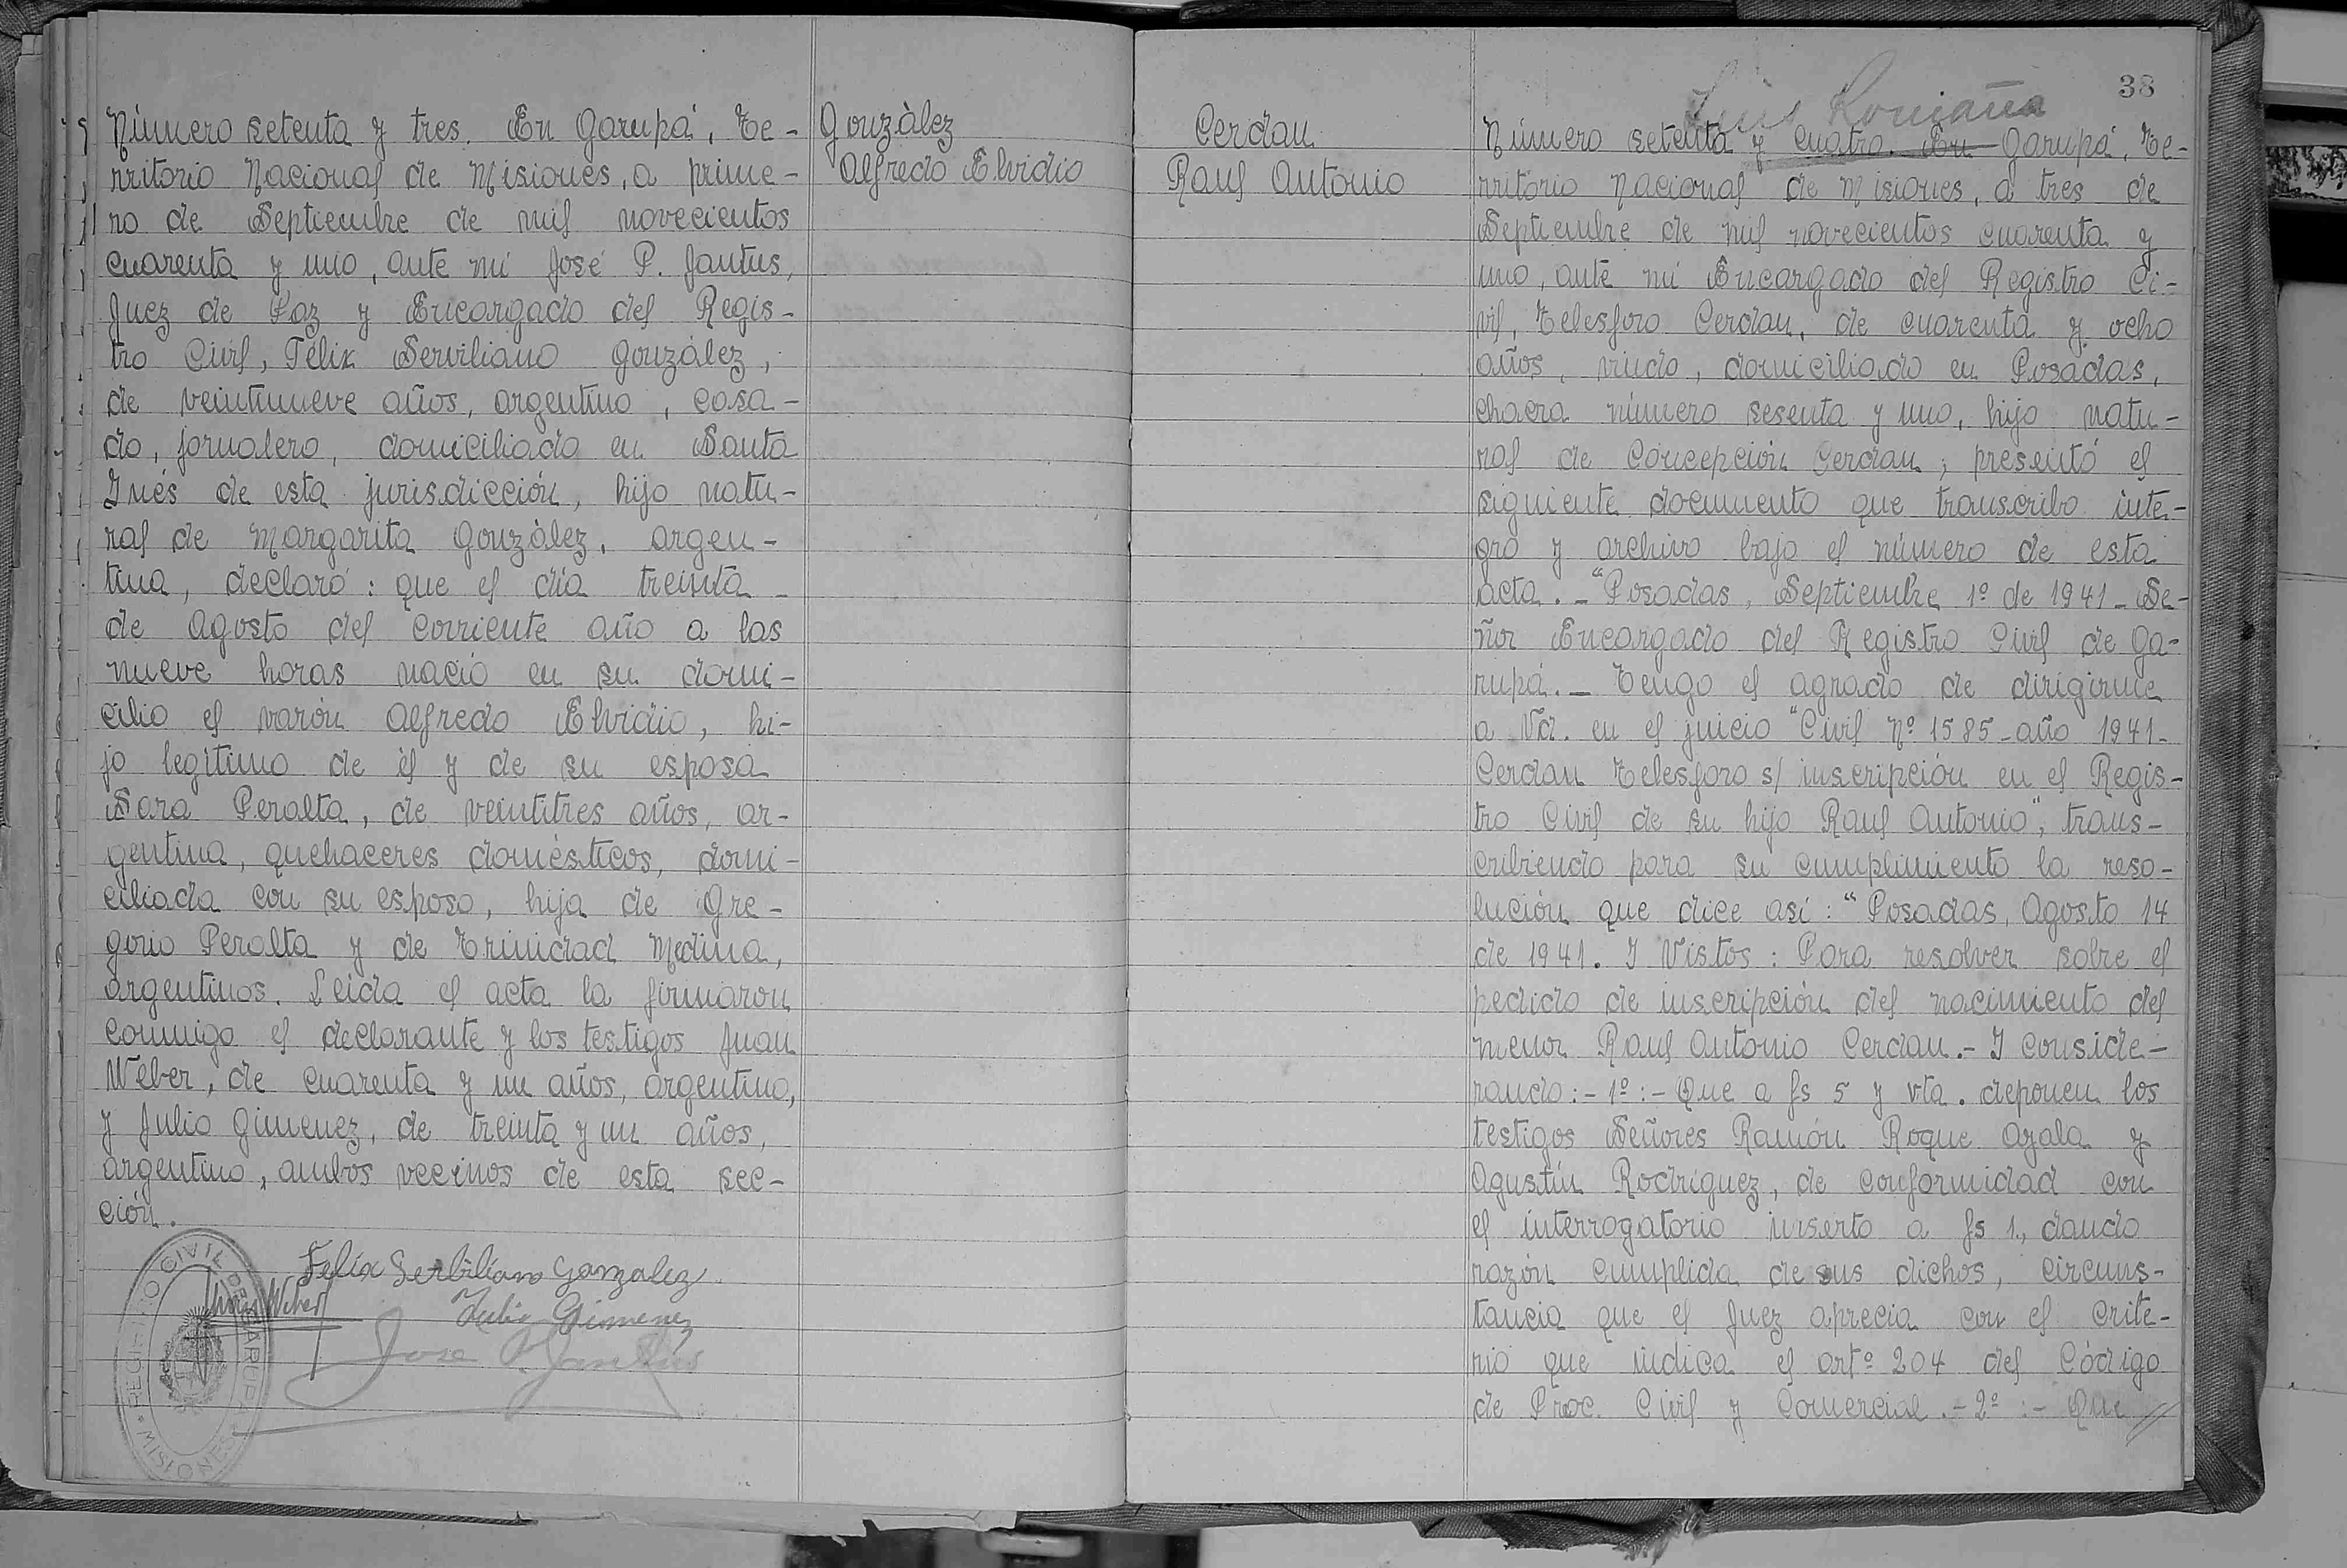 Número setenta y tres. En Garupá, Te-
rritorio Nacional de Misiones, a prime-
ro de Septiembre de mil novecientos
cuarenta y uno, ante mi José P. Jantus,
Juez de Paz y Encargado del Regis-
tro Civil, Félix Serviliano González,
de veintinueve años, argentino, casa-
do, jornalero, domiciliado en Santa
Inés de esta jurisdicción, hijo natu-
ral de Margarita González, argen-
tina, declaró: que el día treinta
de Agosto del corriente año a las
nueve horas nació en su domi-
cilio el varón Alfredo Elvidio, hi-
jo legítimo de él y de su esposa
Sara Peralta, de veintitres años, ar-
gentina, quehaceres domésticos, domi-
ciliada con su esposo, hija de Gre-
gorio Peralta y de Trinidad Medina,
argentinos. Leida el acta la firmaron
conmigo el declarante y los testigos Juan
Weber, de cuarenta y un años, argentino,
y Julio Gimenez, de treinta y un años,
argentino, ambos vecinos de esta sec-
ción.
Felix Serbiliano Gonzalez
Juan Weber
Julio Gimenez
Jose P. Jantus
REGISTRO CIVIL DE GARUPÁ
MISIONES
González
Alfredo Elvidio
Cerdan
Raul Antonio
38
Luis Romaña
Número setenta y cuatro. En Garupá, Te-
rritorio Nacional de Misiones, a tres de
Septiembre de mil novecientos cuarenta y
uno, ante mi Encargado del Registro Ci-
vil, Telesforo Cerdan, de cuarenta y ocho
años, viudo, domiciliado en Posadas,
chacra número sesenta y uno, hijo natu-
ral de Concepción Cerdan; presentó el
siguiente documento que transcribo inte-
gro y archivo bajo el número de esta
acta.- "Posadas, Septiembre 1º de 1941_Se-
ñor Encargado del Registro Civil de Ga-
rupá._ Tengo el agrado de dirigirme
a Vd. en el juicio "Civil Nº 1585_año 1941-
Cerdan Telesforo s/ inscripción en el Regis-
tro Civil de su hijo Raul Antonio", trans-
cribiendo para su cumplimiento la reso-
lución que dice así: "Posadas, Agosto 14
de 1941. Y Vistos: Para resolver sobre el
pedido de inscripción del nacimiento del
menor Raul Antonio Cerdan.- Y conside-
rando:- 1º:- Que a fs 5 y vta. deponen los
testigos Señores Ramón Roque Ayala y
Agustín Rodríguez, de conformidad con
el interrogatorio inserto a fs 1., dando
razón cumplida de sus dichos, circuns-
tancia que el Juez aprecia con el crite-
rio que indica el artº 204 del Código
de Proc. Civil y Comercial.- 2º:- Que //